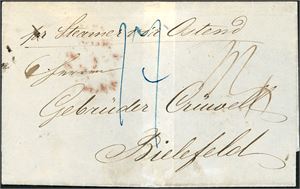 pr Steamer via Ostend
Herren
Gebrüder Crüwell
Bielefeld